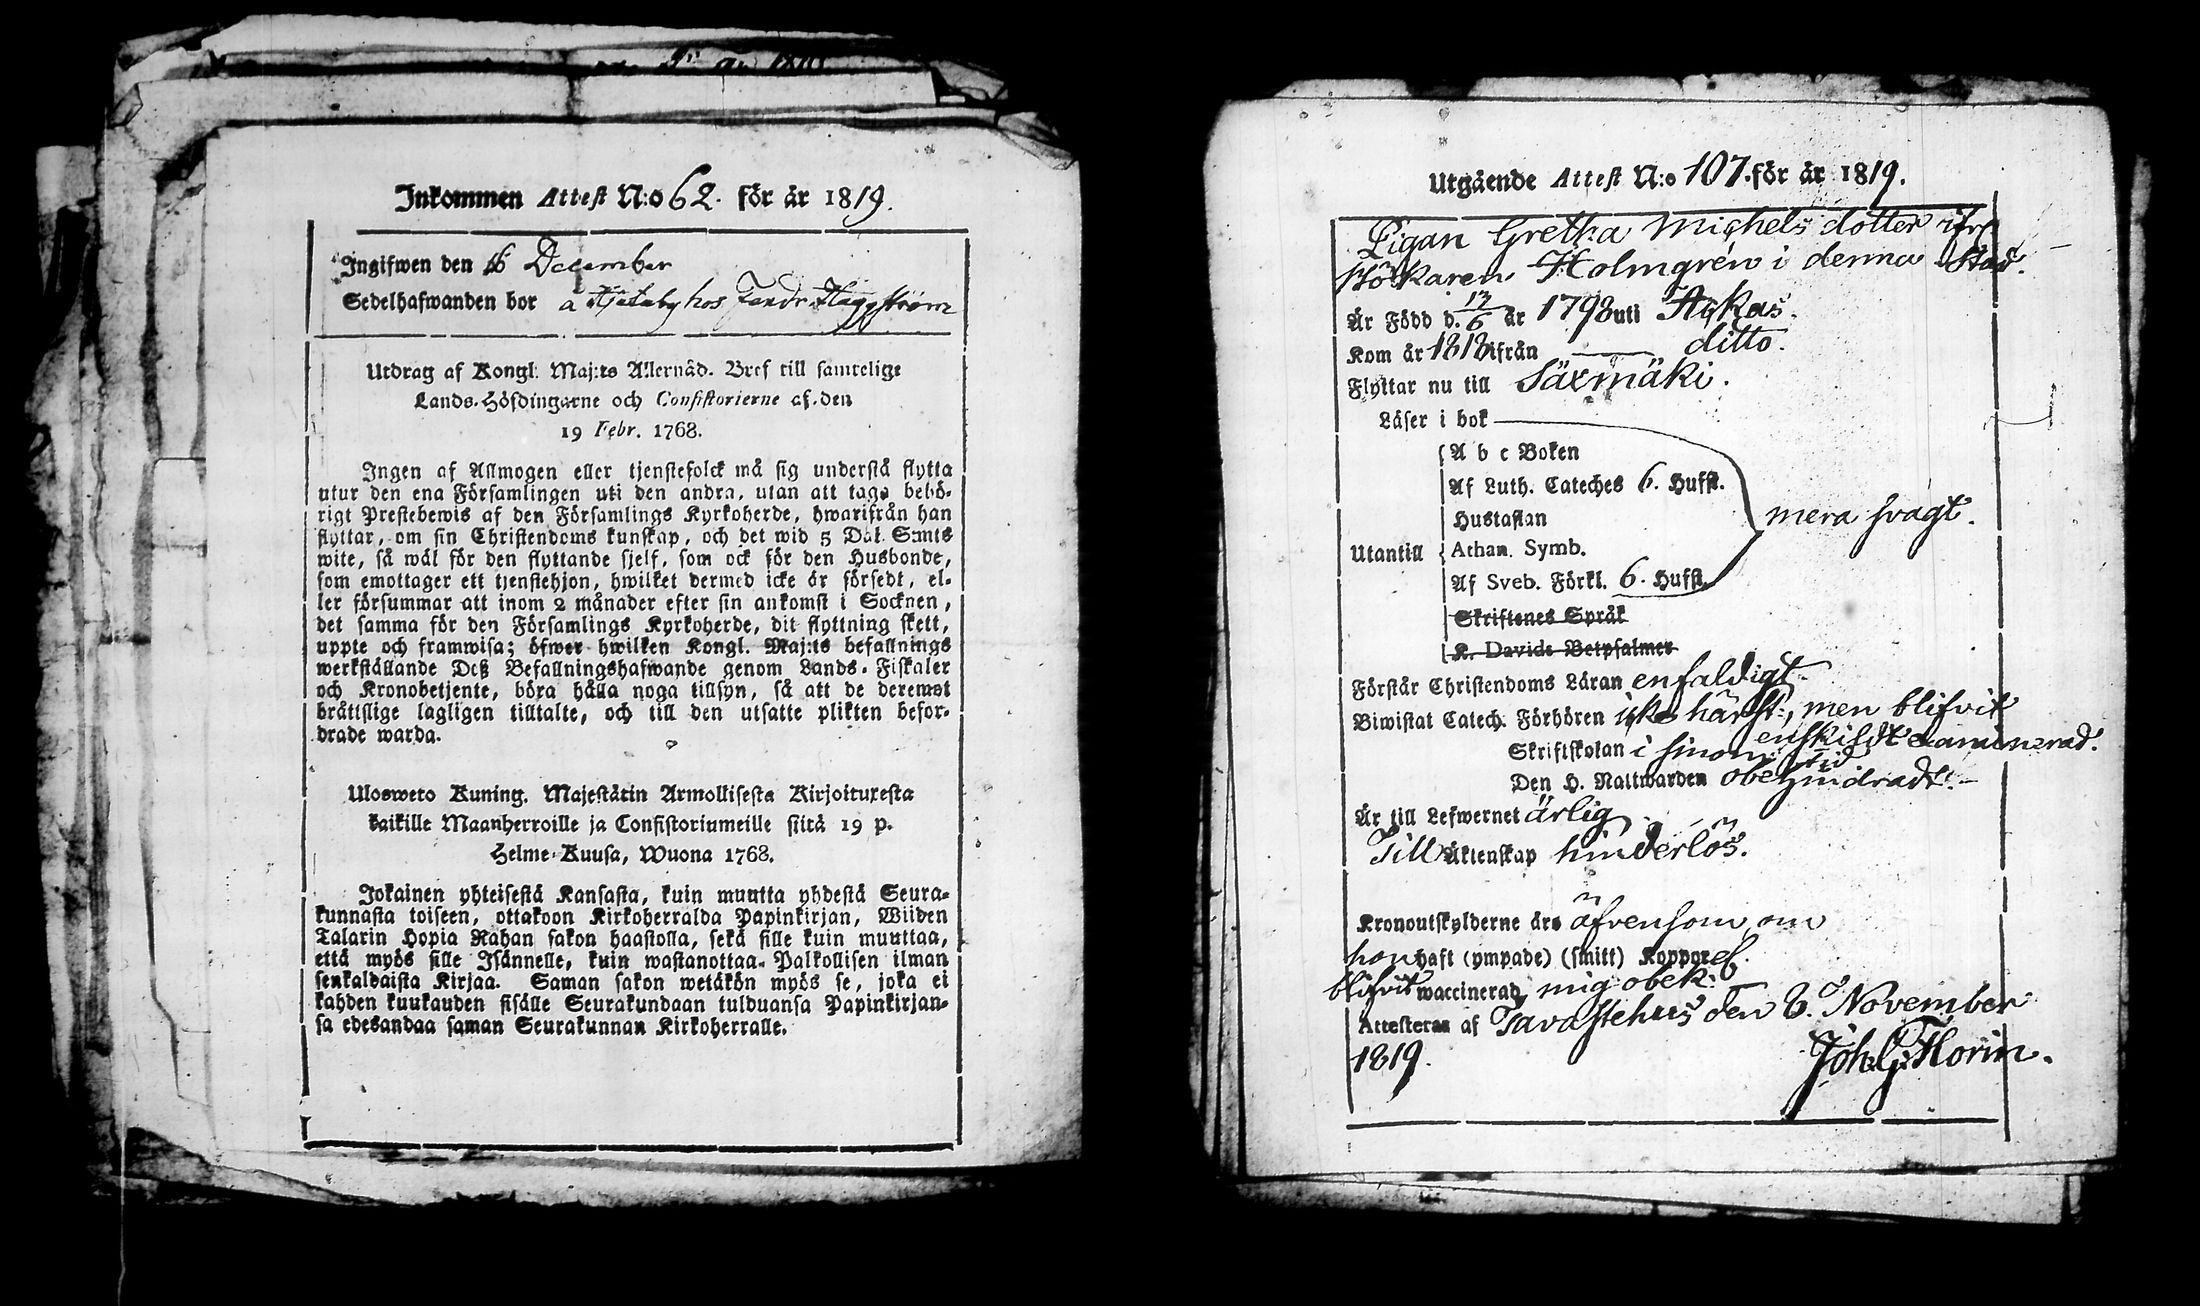 Inkommen Attest N:o 62. för år 1819.
Ingifwen den 16 December
Sedelhafwanden bor å hos Häggström
Utdrag af Kongl. Maj:ts Allernåd. Bref till samtelige
Lands-Höfdingarne och Consistorierne af den
19 Febr. 1768.
Ingen af Allmogen eller tjenstefolck må sig understå flytta
utur den ena Församlingen uti den andra, utan att taga behö-
rigt Prestebewis af den Församlings Kyrkoherde, hwarifrån han
flyttar, om sin Christendoms kunskap, och det wid 5 Dal. S:mts
wite, så wäl för den flyttande sjelf, som ock för den Husbonde,
som emottager ett tjenstehjon, hwilket dermed icke är försedt, el-
ler försummar att inom 2 månader efter sin ankomst i Socknen,
det samma för den Församlings Kyrkoherde, dit flyttning skett,
uppte och framwisa; öfwer hwilken Kongl. Maj:ts befallnings
werkställande Deß Befallningshafwande genom Lands-Fiskaler
och Kronobetjente, böra hålla noga tillsyn, så att de deremot
bråttslige lagligen tilltalte, och till den utsatte plikten befor-
drade warda.
Ulosweto Kuning. Majestätin Armollisesta Kirjoituxesta
kaikille Maanherroille ja Consistoriumeille siitä 19 p.
Helme-Kuusa, Wuona 1768.
Jokainen yhteisestä Kansasta, kuin muutta yhdestä Seura-
kunnasta toiseen, ottakoon Kirkoherralda Papinkirjan, Wiiden
Talarin Hopia Rahan sakon haastolla, sekä sille kuin muuttaa,
että myös sille Isännelle, kuin wastanottaa Palkollisen ilman
senkaldaista Kirjaa. Saman sakon wetäkön myös se, joka ei
kahden kuukauden sisälle Seurakundaan tulduansa Papinkirjan-
sa edesandaa saman Seurakunnan Kirkoherralle.
Utgående Attest N:o 107. för år 1819.
Pigan Gretha Michels dotter ifrå
Hökaren Holmgrén i denna Stad.
Är Född d. 13/6 år 1798 uti Ackas.
Kom år 1818 ifrån ditto.
Flyttar nu till Säxmäki.
Läser i bok
A b c Boken
Af Luth. Cateches 6. Hufst.
Hustaflan
mera svagt.
Utantill Athan. Symb.
Af Sveb. Förkl. 6. Hufst.
Skriftenes Språk
K. Davids Betpsalmer
Förstår Christendoms Läran enfaldigt
Biwistat Catech. Förhören icke härst., men blifvit
enskildt examinerad.
Skriftskolan i sinom tid
Den H. Nattwarden obehindradt.
Är till Lefwernet ärlig
Till Äktenskap hinderlös.
Kronoutskylderne äro äfvensom om
hon haft (ympade) (smitt) Koppor el.
blifvit waccinerad mig obek.
Attesteras af Tavastehus den 6. November
1819.
Joh. G. Florin.